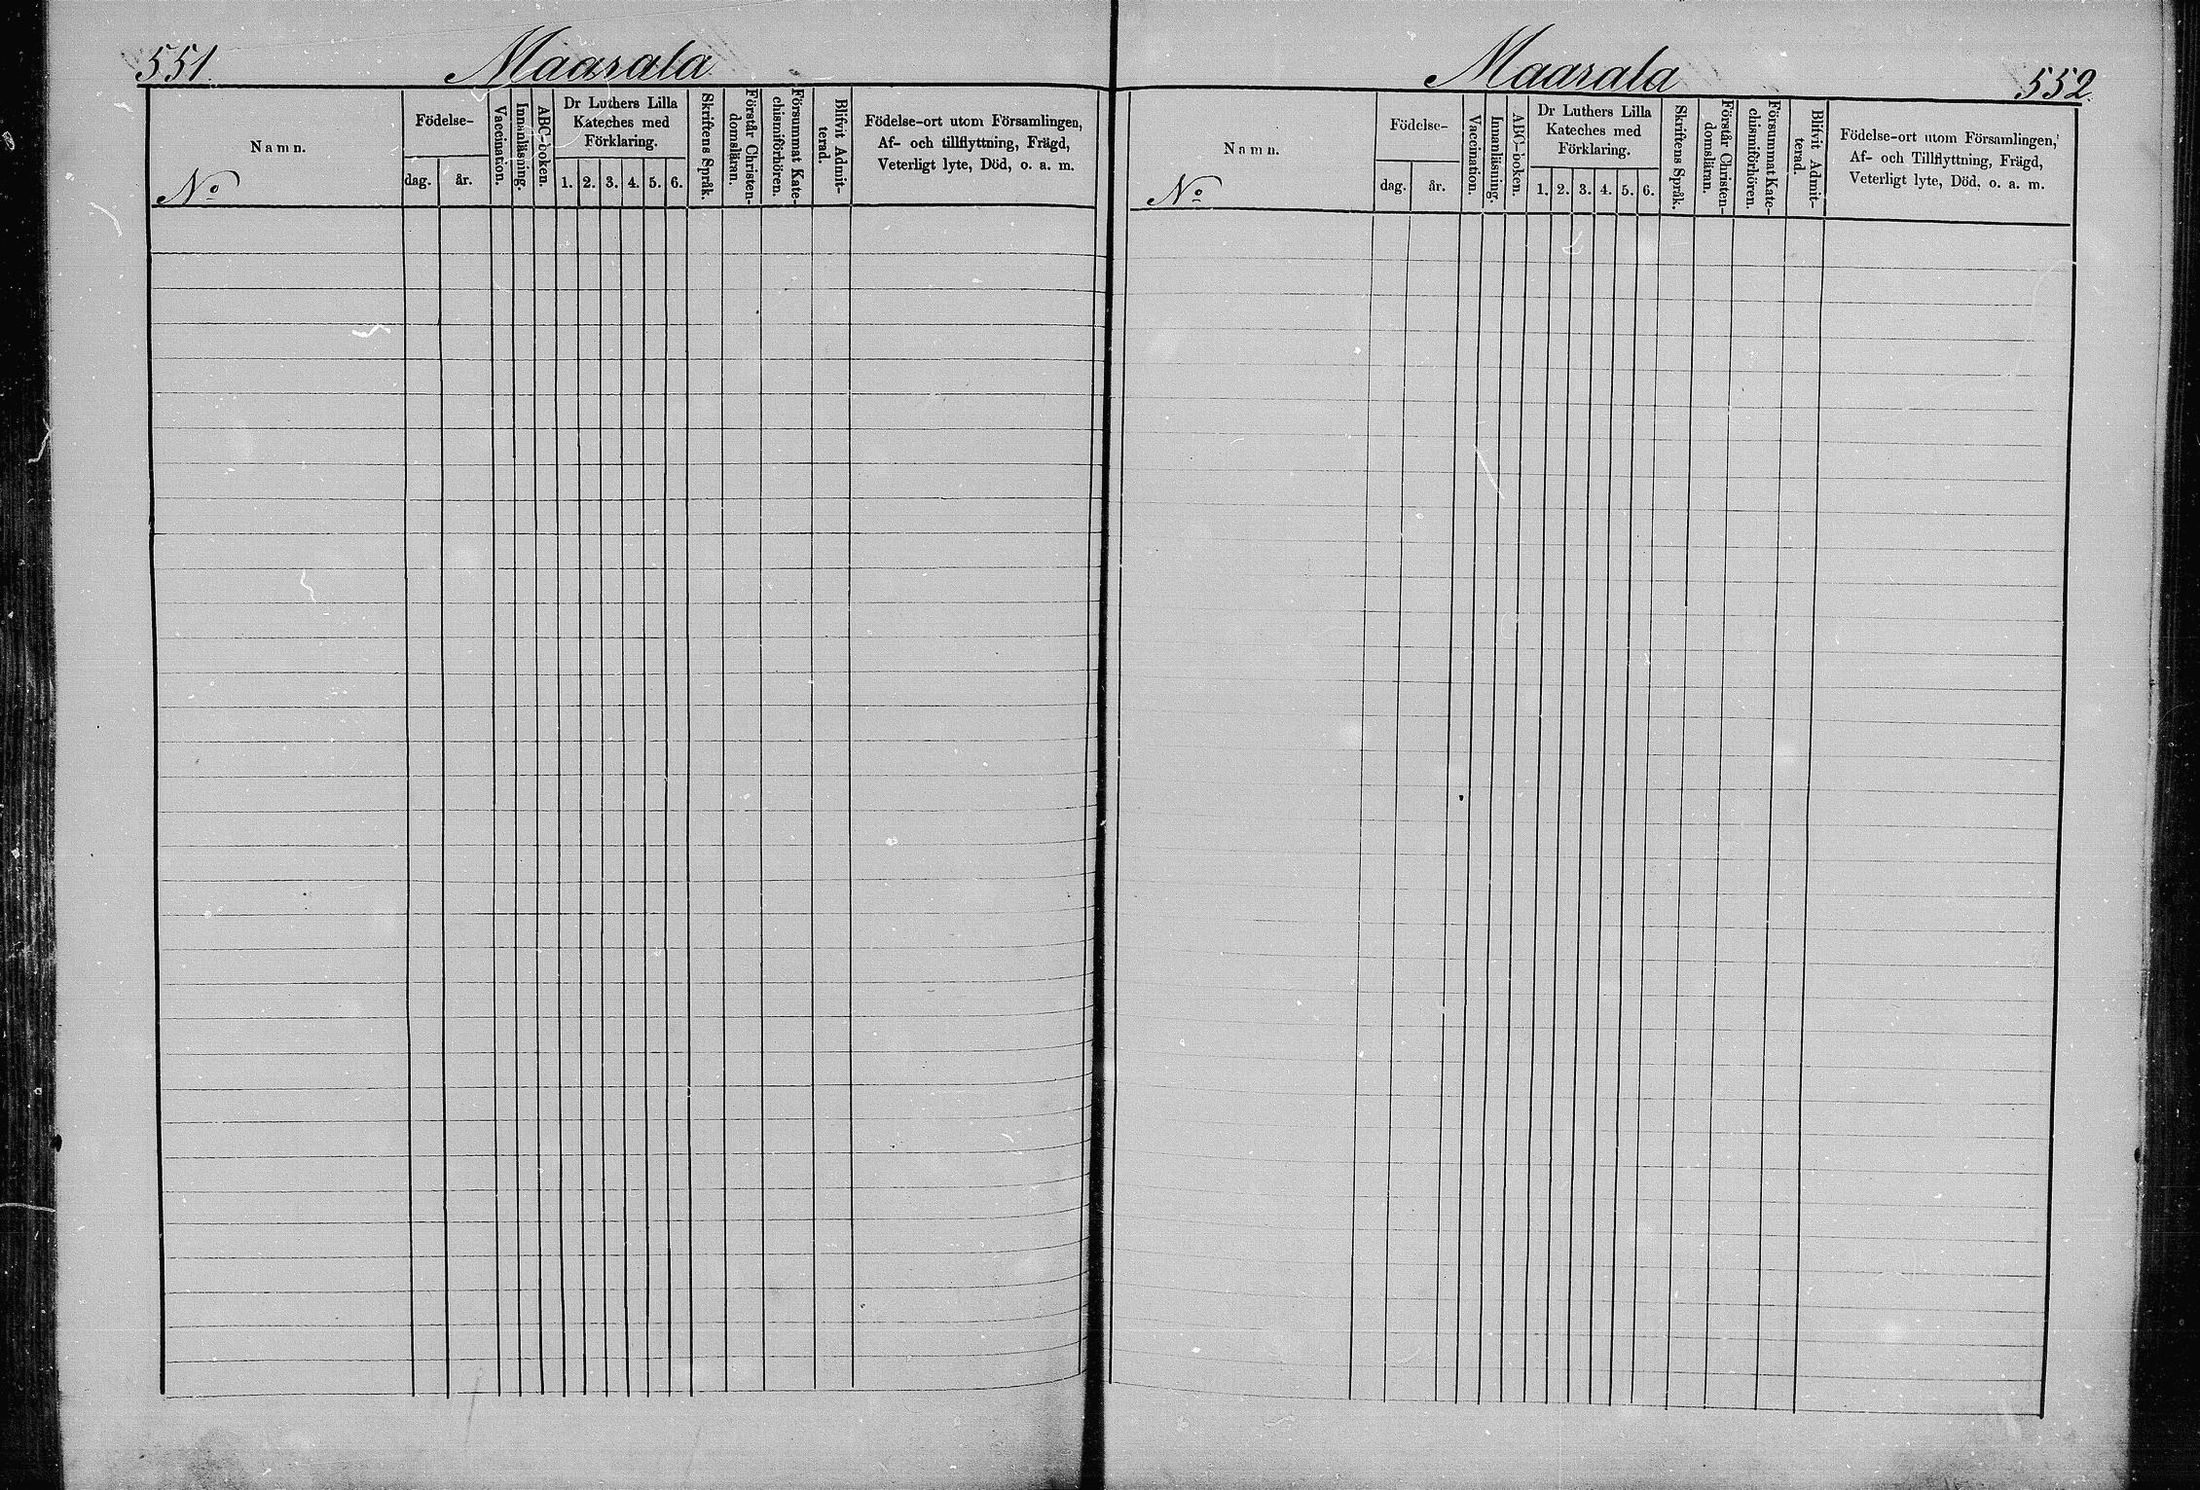 551.
Maarala
Namn.
No
Födelse-
dag.
år.
Vaccination.
Innanläsning.
ABC-boken.
Dr Luthers Lilla
Kateches med
Förklaring.
1. 2. 3. 4. 5. 6.
Skriftens Språk.
Förstår Christen-
domsläran.
Försummat Kate-
chismiförhören.
Blifvit Admit-
terad.
Födelse-ort utom Församlingen,
Af- och tillflyttning, Frägd,
Veterligt lyte, Död, o. a. m.
Maarala
552.
Namn.
No
Födelse-
dag.
år.
Vaccination.
Innanläsning.
ABC-boken.
Dr Luthers Lilla
Kateches med
Förklaring.
1. 2. 3. 4. 5. 6.
Skriftens Språk.
Förstår Christen-
domsläran.
Försummat Kate-
chismiförhören.
Blifvit Admit-
terad.
Födelse-ort utom Församlingen,
Af- och Tillflyttning, Frägd,
Veterligt lyte, Död, o. a. m.